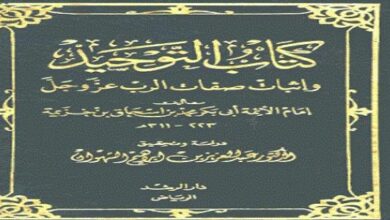 كتاب التوحيد
وإثبات صفات الرب عز وجل
تأليف
إمام الأئمة أبي بكر محمد بن إسحاق بن خزيمة
٢٢٣ - ٣١١ هـ
دراسة وتحقيق
الدكتور عبد العزيز بن إبراهيم الشهوان
دار الرشد
الرياض